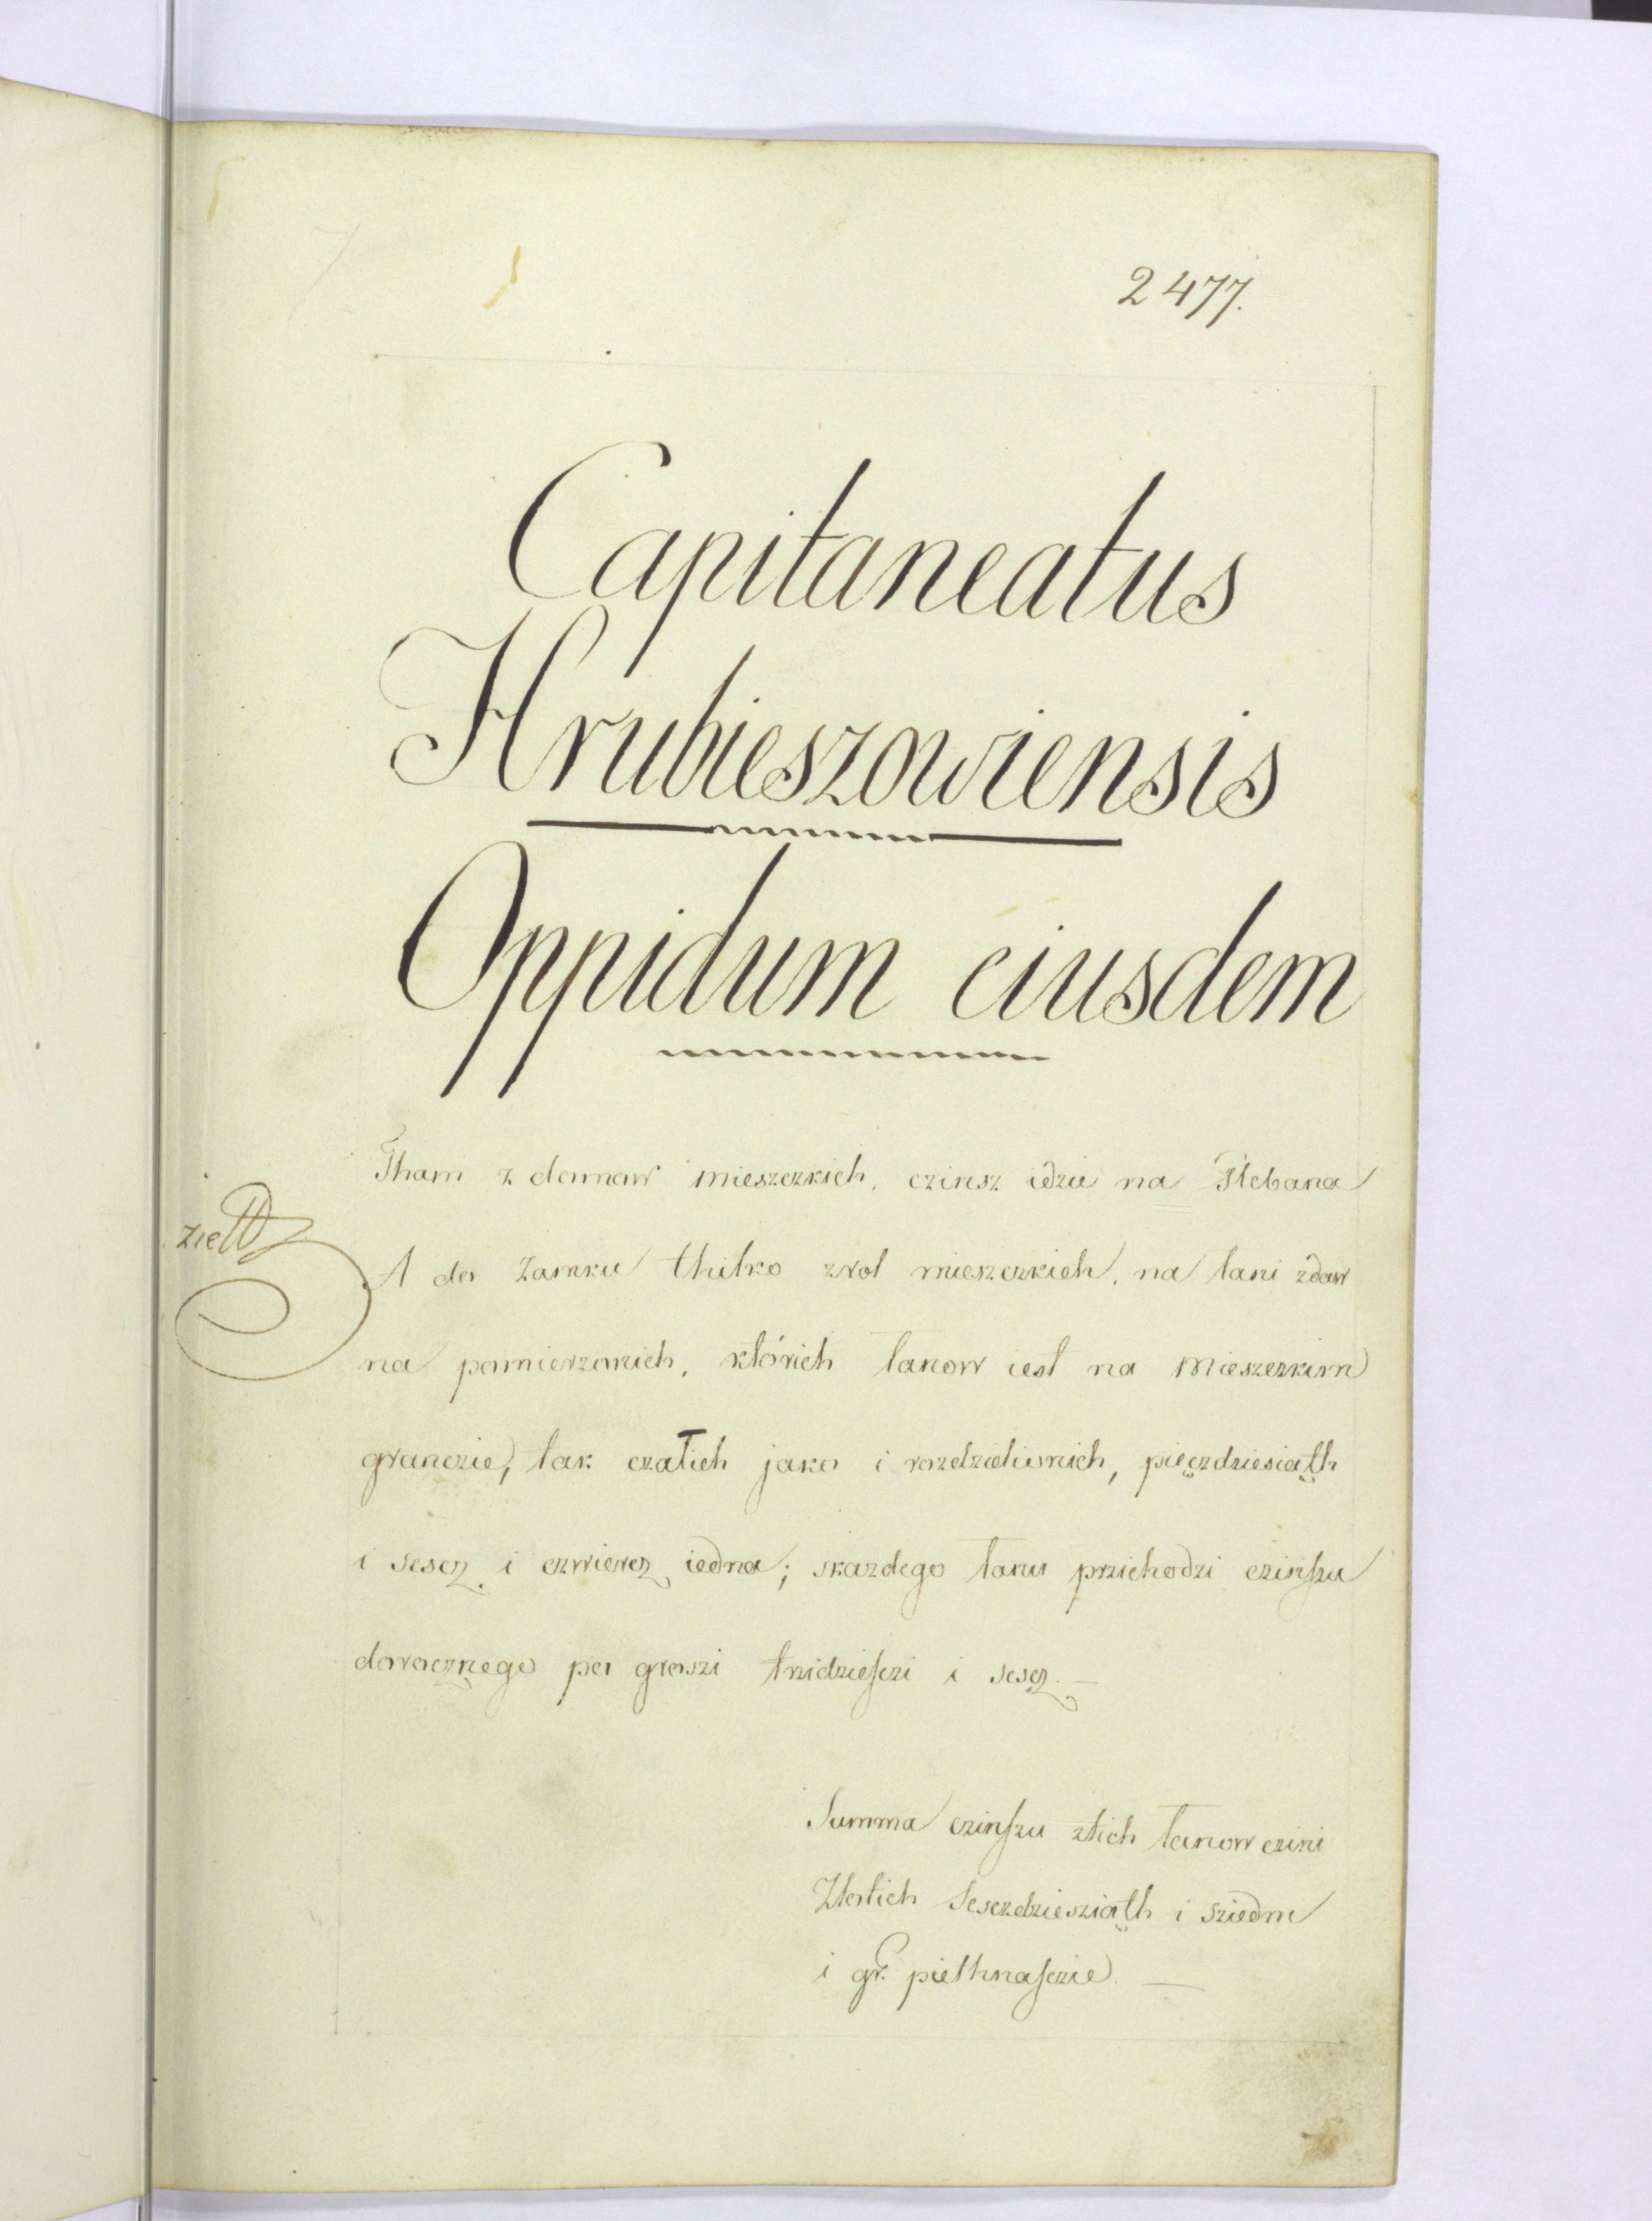 2477.
Capitaneatus
Hrubieszowiensis
Oppidum eiusdem
Tham z domow mieszczkich, czinsz idzie na Plebana
A do Zamku thilko zrol mieszczkich, na lani zdaw
na pomierzonich, którich lanow iest na Mieszczkim
grunczie, tak czałich jako i rozdzielionich, pięczdziesiąth
i sescz i czwiercz iedna; skazdego lanu przichodzi czinszu
dorocznego po groszi trzidziesczi i sescz. —
Summa czinszu ztich lanow czini
Złotich Sesczdziesziąth i sziedm
i gr. piethnasczie. —